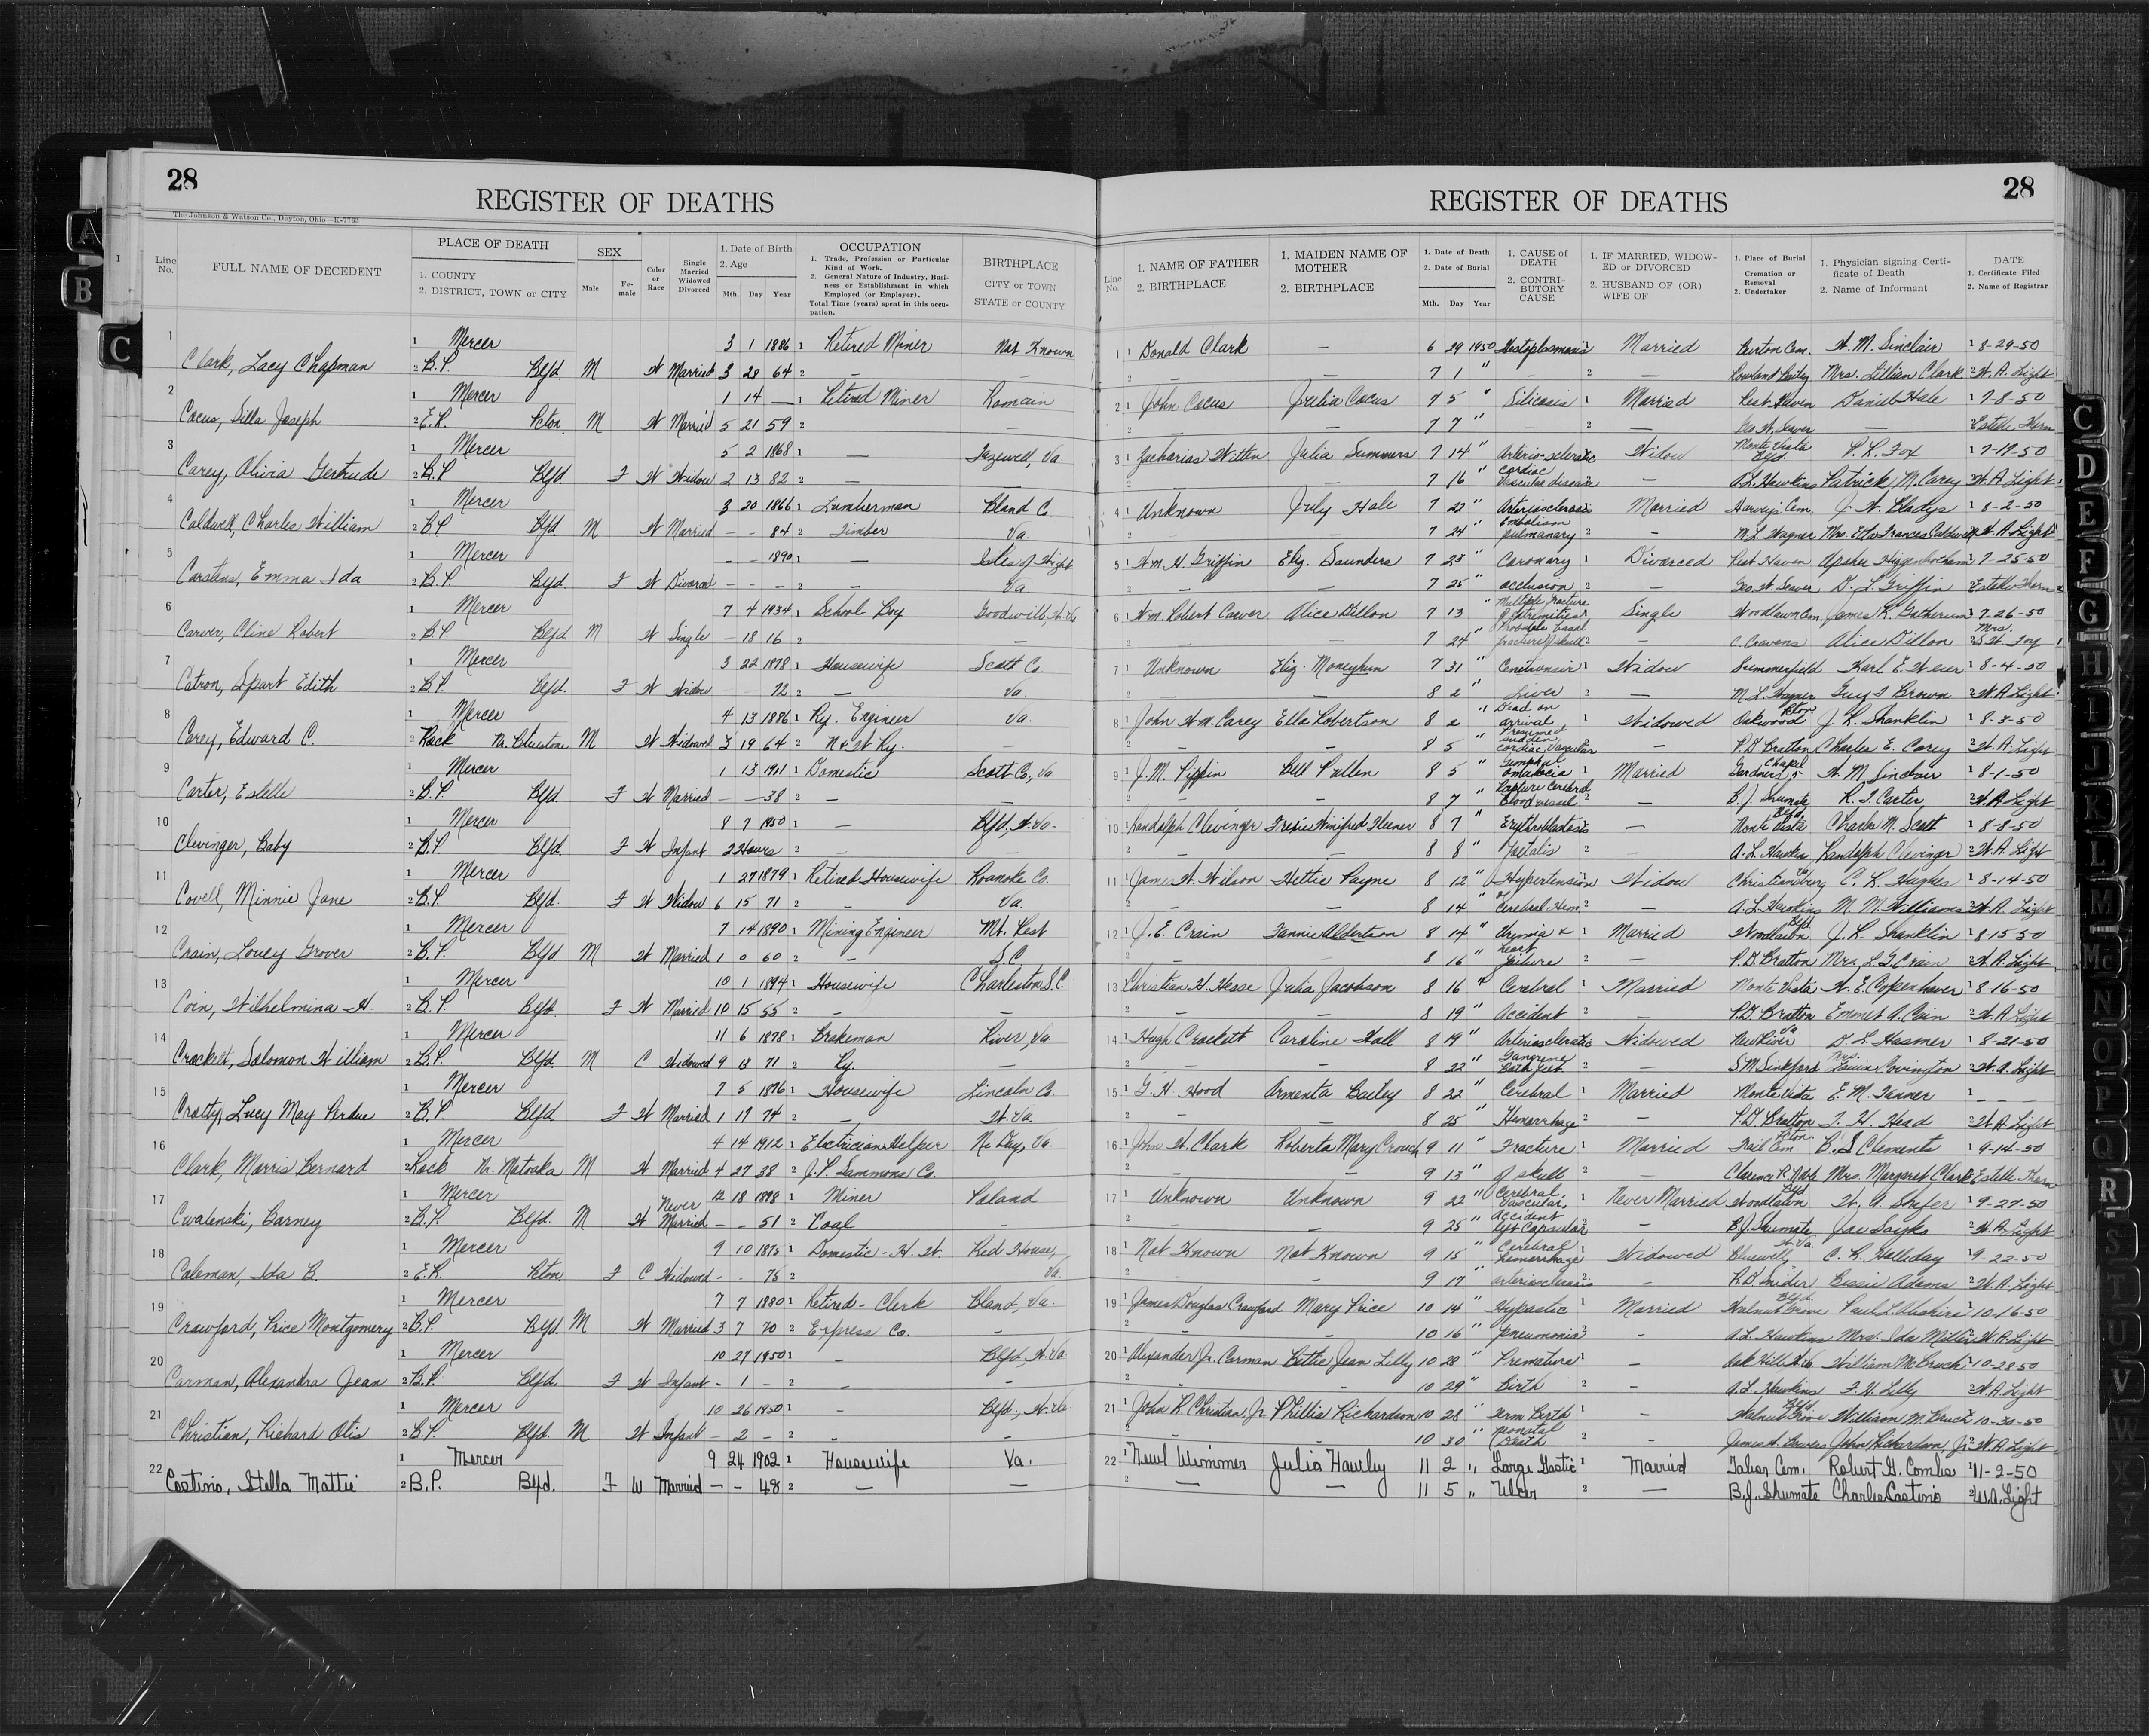 28
REGISTER OF DEATHS
The Johnson & Watson Co., Dayton, Ohio—K-7763
Line No.
FULL NAME OF DECEDENT
PLACE OF DEATH
1. COUNTY
2. DISTRICT, TOWN or CITY
SEX
Male
Female
Color or Race
Single Married Widowed Divorced
1. Date of Birth
2. Age
Mth. Day Year
OCCUPATION
1. Trade, Profession or Particular Kind of Work.
2. General Nature of Industry, Business or Establishment in which Employed (or Employer).
Total Time (years) spent in this occupation.
BIRTHPLACE
CITY or TOWN
STATE or COUNTY
1 Mercer 3 1 1886 1 Retired Miner Not Known
Clark, Lacy Chapman 2 B.P. Blfd. M W Married 3 28 64 2 —
2 Mercer 1 14 — 1 Retired Miner Romain
Cocus, Silla Joseph 2 E.R. Pcton. M W Married 5 21 59 2
3 Mercer 5 2 1868 1 — Tazewell, Va
Carey, Olivia Gertrude 2 B.P Blfd. F W Widow 2 13 82 2 —
4 Mercer 3 20 1866 1 Lumberman Bland C.
Caldwell, Charles William 2 B.P Blfd M W Married — — 84 2 Timber Va.
5 Mercer — — 1890 1 — Isles of Wight
Carstens, Emma Ida 2 B.P Blfd. F W Divorced — — — 2 — Va
6 Mercer 7 4 1934 1 School Boy Goodwill, W. Va
Carver, Cline Robert 2 B.P Blfd M W Single — 18 16 2
7 Mercer 3 22 1878 1 Housewife Scott Co.
Catron, Spart Edith 2 B.P. Blfd. F W Widow 72 2 — Va.
8 Mercer 4 13 1886 1 Ry. Engineer Va.
Carey, Edward C. 2 Rock Nr. Bluestone M W Widowed 3 19 64 2 N & W Ry. —
9 Mercer 1 13 1911 1 Domestic Scott Co, Va
Carter, Estelle 2 B.P. Blfd. F W Married — — 38 2 —
10 Mercer 8 7 1950 1 — Blfd, W. Va.
Clevinger, Baby 2 B.P. Blfd. F W Infant 2 Hours 2 —
11 Mercer 1 27 1879 1 Retired Housewife Roanoke Co.
Covell, Minnie Jane 2 B.P. Blfd. F W Widow 6 15 71 2 — Va.
12 Mercer 7 14 1890 1 Mining Engineer Mt. Rest
Crain, Loucy Grover 2 B.P. Blfd M W Married 1 0 60 2 — S.C.
13 Mercer 10 1 1894 1 Housewife Charleston S.C.
Coin, Wilhelmina H. 2 B.P. Blfd. F W Married 10 15 55 2 —
14 Mercer 11 6 1878 1 Brakeman River, Va
Crockett, Solomon William 2 B.P. Blfd. M C Widowed 9 13 71 2 Ry. —
15 Mercer 7 5 1876 1 Housewife Lincoln Co.
Crotty, Lucy May Perdue 2 B.P Blfd F W Married 1 17 74 2 — W. Va.
16 Mercer 4 14 1912 1 Electrician Helper Ni Day, Va.
Clark, Morris Bernard 2 Rock Nr. Matoaka M W Married 4 27 38 2 J.P. Sammons Co.
17 Mercer Never 12 18 1898 1 Miner Poland
Cwalenski, Barney 2 B.P. Blfd. M W Married — — 51 2 Coal —
18 Mercer 9 10 1875 1 Domestic - H. W. Red House,
Coleman, Ida B. 2 E.R. Pcton F C Widowed - - 75 2 Va.
19 Mercer 7 7 1880 1 Retired - Clerk Bland, Va.
Crawford, Price Montgomery 2 B.P. Blfd. M W Married 3 7 70 2 Express Co. —
20 Mercer 10 27 1950 1 — Blfd. W. Va.
Carman, Alexandra Jean 2 B.P. Blfd. F W Infant - 1 - 2 —
21 Mercer 10 26 1950 1 — Blfd., W. Va
Christian, Richard Otis 2 B.P. Blfd. M W Infant - 2 - 2 —
22 Mercer 9 24 1902 1 Housewife Va.
Costino, Stella Mattie 2 B.P. Blfd. F W Married — — 48 2 —
28
REGISTER OF DEATHS
Line No.
1. NAME OF FATHER
2. BIRTHPLACE
1. MAIDEN NAME OF MOTHER
2. BIRTHPLACE
1. Date of Death
2. Date of Burial
Mth. Day Year
1. CAUSE of DEATH
2. CONTRIBUTORY CAUSE
1. IF MARRIED, WIDOWED or DIVORCED
2. HUSBAND OF (OR) WIFE OF
1. Place of Burial Cremation or Removal
2. Undertaker
1. Physician signing Certificate of Death
2. Name of Informant
DATE
1. Certificate Filed
2. Name of Registrar
1 1 Donald Clark — 6 29 1950 Histoplasmosis 1 Married Burton Cem. W. M. Sinclair 1 8-29-50
2 7 1 " 2 — Rowland Bailey Mrs. Lillian Clark 2 W. A. Light
2 1 John Cocus Julia Cocus 7 5 " Silicosis 1 Married Rest Haven Daniel Hale 1 7-8-50
2 — 7 7 " 2 — Geo. W. Seaver — Estelle Thorn
3 1 Zacharias Witten Julia Summers 7 14 " Arterio-sclerotic Widow Monte Vista Blfd. P. R. Fox 1 7-17-50
2 — 7 16 " Cardiac Vascular disease — A. L. Hawkins Patrick M. Carey 2 W. A. Light
4 1 Unknown July Hale 7 22 " Arteriosclerosis Married Harveys Cem. J. N. Bladys 1 8-2-50
7 24 " Embolism pulmanary 2 — M. L. Wagner Mrs. Ella Frances Caldwell 2 W. A. Light
5 1 Wm. H. Griffin Eliz. Saunders 7 23 " Coronary 1 Divorced Rest Haven Upshur Higginbotham 1 7-25-50
7 25 " occlusion 2 — Geo. W. Seaver D. L. Griffin Estelle Thorn
6 1 Wm. Robert Carver Alice Dillon 7 13 " Multiple fracture of extremities Single Woodlawn Cem. James R. Gatherum 1 7-26-50
2 — 7 24 " Probable basal fracture of skull 2 C. Cravens Mrs. Alice Dillon 2 S. W. Foy
7 1 Unknown Eliz. Moneyhun 7 31 " 1 Widow Summerfield Karl E. Weier 1 8-4-50
2 — 8 2 " Liver 2 — M. L. Wagner Guy S Brown 2 W. A. Light
8 1 John Wm. Carey Ella Robertson 8 2 " Dead on arrival, 1 Widowed Oakwood Pcton J. R. Shanklin 1 8-3-50
2 — 8 5 " Presumed sudden cordiac, Vascular — P. D. Bratton Charles E. Carey 2 W. A. Light
9 1 J. M. Pippin Bell Pullen 8 5 " 1 Married Gardners Chapel W. M. Sinclair 1 8-1-50
2 — 8 7 " Rapture Cerebral Blood vessel 2 — B. J. Shumate R. T. Carter 2 W. A. Light
10 1 Randolph Clevinger Winifred Fleener 8 7 " Erythroblastosis — Monte Vista Blfd. Charles M. Scott 1 8-8-50
2 — 8 8 " Foetalis 2 — A. L. Hawkins Randolph Clevinger 2 W. A. Light
11 1 James W. Wilson Hettie Payne 8 12 " Hypertension Widow Christiansberg Va C. R. Hughes 1 8-14-50
2 — 8 14 " Cerebral Hem. 2 — A. L. Hawkins M. M. Williams 2 W. A. Light
12 1 J. E. Crain Fannie Aldertson 8 14 " Uremia & 1 Married Woodlawn Blfd J. R. Shanklin 1 8-15-50
2 — 8 16 " heart failure 2 — P. D. Bratton Mrs. L. G. Crain 2 W. A. Light
13 1 Christian H. Hesse Julia Jacobson 8 16 " Cerebral 1 Married Monte Vista W. E. Copenhaver 1 8-16-50
— 8 19 " Accident 2 — P. D. Bratton Emmet A. Coin 2 W. A. Light
14 1 Hugh Crockett Caroline Hall 8 19 " Arteriosclerotic Widowed New River Va D. L. Hosmer 1 8-21-50
2 — 8 22 " Gangrene Both feet 2 — S. M. Sinkford Mrs. Covington 2 W. A. Light
15 1 G. H. Hood Armenta Bailey 8 22 " Cerebral 1 Married Monte Vista E. M. Tanner 1 — —
2 — 8 25 " Hemorrhage 2 P. D. Bratton T. H. Hood 2 W. A. Light
16 1 John W. Clark Roberta Mary Crouch 9 11 " Fracture 1 Married Trail Cem Pcton. B. S Clements 1 9-14-50
2 — 9 13 " of skull — Clarence R. Mrs. Margaret Clark Estelle Thorn
17 1 Unknown Unknown 9 22 " Cerebral Vascular, Never Married Woodlawn Blfd W. A. Shafer 1 9-27-50
2 — 9 25 " Accident left Capsular 2 — B. J. Shumate Joe Sayko 2 W. A. Light
18 1 Not Known Not Known 9 15 " Cerebral hemorrhage 1 Widowed Bluewell, W. Va. C. R. Halliday 1 9-22-50
2 — 9 17 " arteriosclerosis - R. D. Snider Bessie Adams 2 W. A. Light
19 1 James Douglas Crawford Mary Price 10 14 " Hypastic 1 Married Walnut Grove Blfd. Paul L. 1 10-16-50
2 — 10 16 " pneumonia 2 - A. L. Hawkins Mrs. Ida Miller 2 W. A. Light
20 1 Alexander Jr. Carman Bettie Jean Lilly 10 28 " Premature 1 — Oak Hill 1 10-28-50
2 — 10 29 " Birth 2 - A. L. Hawkins F. H. Lilly 2 W. A. Light
21 1 John R. Christian, Jr. Phillis Richardson 10 28 " Term Birth 1 — Walnut Grove Blfd. 1 10-30-50
2 - 10 30 " neonatal Death 2 — James H. Bowers John Richardson, Jr. 2 W. A. Light
22 1 Newl Wimmer Julia Hawley 11 2 " Large Gastic 1 Married Tabor Cem. Robert G. Combs 1 11-2-50
2 — 11 5 " Ulcer 2 — B. J. Shumate Charles Costino 2 W. A. Light
A
B
C
C
D
E
F
G
H
I
J
K
L
M
Mc
N
O
P
Q
R
S
T
U
V
W
X
Y
Z